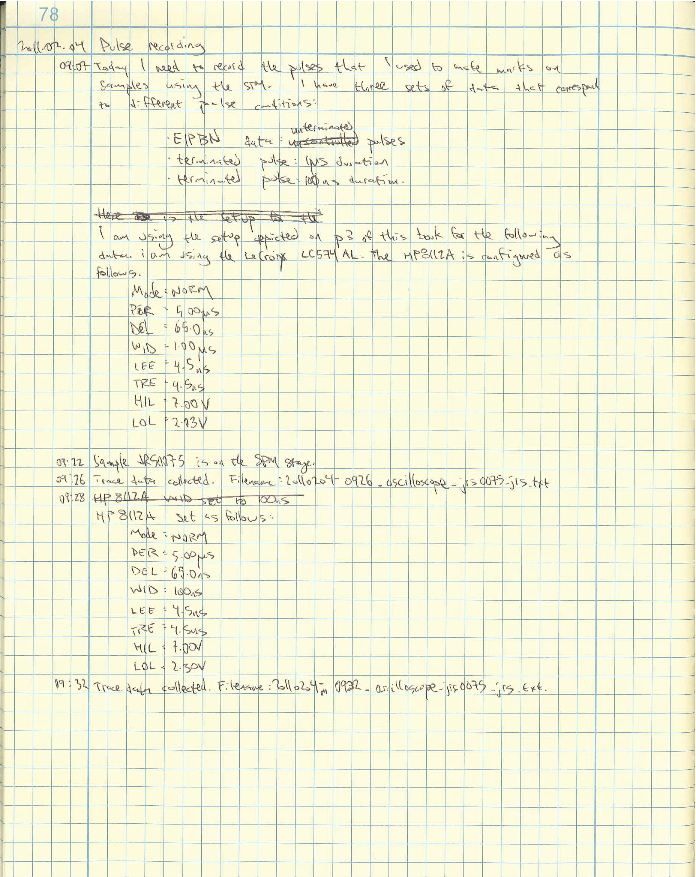 78
2011.02.04 Pulse recording
09:07 Today I need to record the pulses that I used to make marks on
samples using the STM. I have three sets of data that correspond
to different pulse conditions:
unterminated
· EIPBN data: uncontrolled pulses
· terminated pulse: 1µs duration
· terminated pulse: 100ns duration.
Here is the setup for the
I am using the setup depicted on p3 of this book for the following
data. I am using the LeCroy LC574AL. The HP8112A is configured as
follows.
Mode: NORM
PER = 5.00µs
DEL = 65.0ns
WID = 1.00µs
LEE = 4.5ns
TRE = 4.5ns
HIL = 7.00V
LOL = 2.03V
09:22 Sample JRS0075 is on the SPM stage.
09:26 Trace data collected. Filename: 20110204-0926_oscilloscope_jrs0075_jrs.txt
09:28 HP8112A WID set to 100ns
HP8112A set as follows:
Mode: NORM
PER = 5.00µs
DEL = 65.0ns
WID = 100ns
LEE = 4.5ns
TRE = 4.5ns
HIL = 7.00V
LOL = 2.50V
09:32 Trace data collected. Filename: 20110204_0932_oscilloscope_jrs0075_jrs.txt.